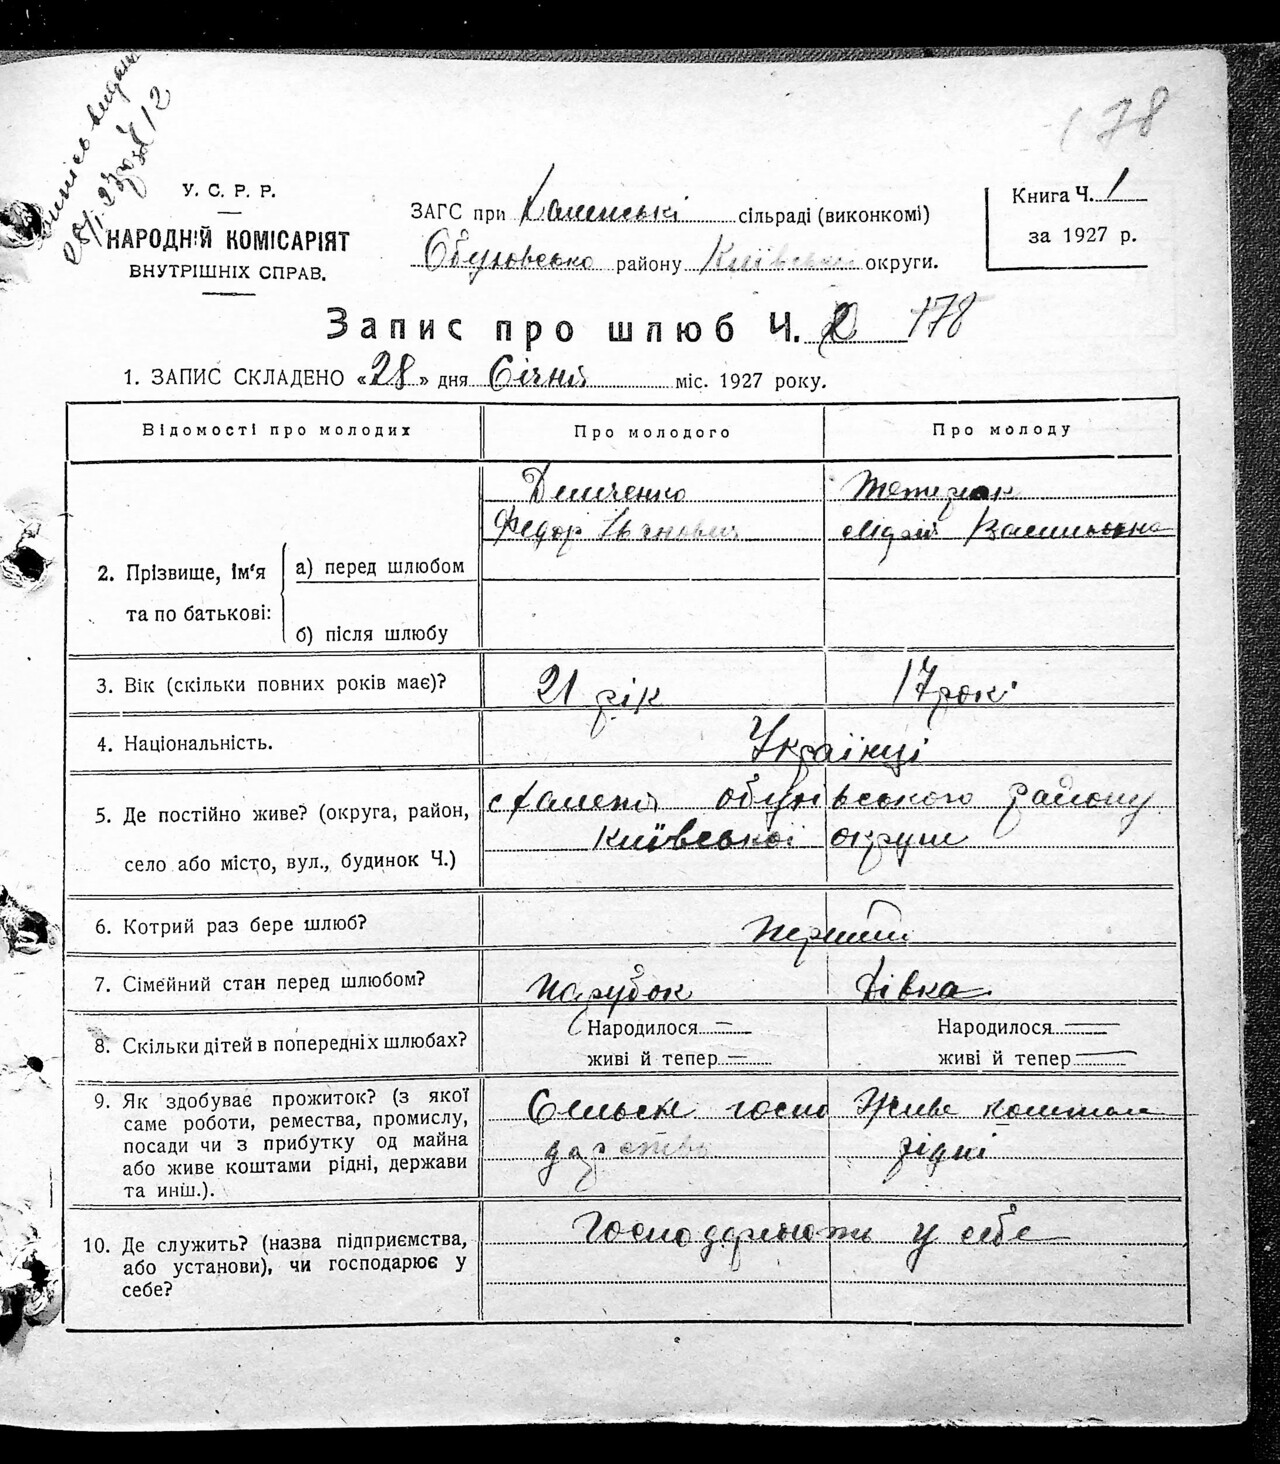 178
У. С. Р. Р.
НАРОДНІЙ КОМІСАРІЯТ
ВНУТРІШНІХ СПРАВ.
ЗАГС при сільраді (виконкомі)
району Київської округи.
Книга Ч. 1
за 1927 р.
Запис про шлюб Ч. 2 178
1. ЗАПИС СКЛАДЕНО «28» дня Січня міс. 1927 року.
Відомості про молодих
Про молодого
Про молоду
2. Прізвище, ім'я та по батькові:
а) перед шлюбом
б) після шлюбу
Федор Іванович
Васильовна
3. Вік (скільки повних років має)?
21 рік
17 рокі
4. Національність.
Українці
5. Де постійно живе? (округа, район,
село або місто, вул., будинок Ч.)
обухівського району
Київської округи
6. Котрий раз бере шлюб?
Перший
7. Сімейний стан перед шлюбом?
Парубок
Дівка
8. Скільки дітей в попередніх шлюбах?
Народилося —
живі й тепер —
Народилося —
живі й тепер —
9. Як здобуває прожиток? (з якої
саме роботи, ремества, промислу,
посади чи з прибутку од майна
або живе коштами рідні, держави
та инш.).
Сельске госпо
дарство
Живе коштом
рідні
10. Де служить? (назва підприємства,
або установи), чи господарює у
себе?
Господарюють у себе